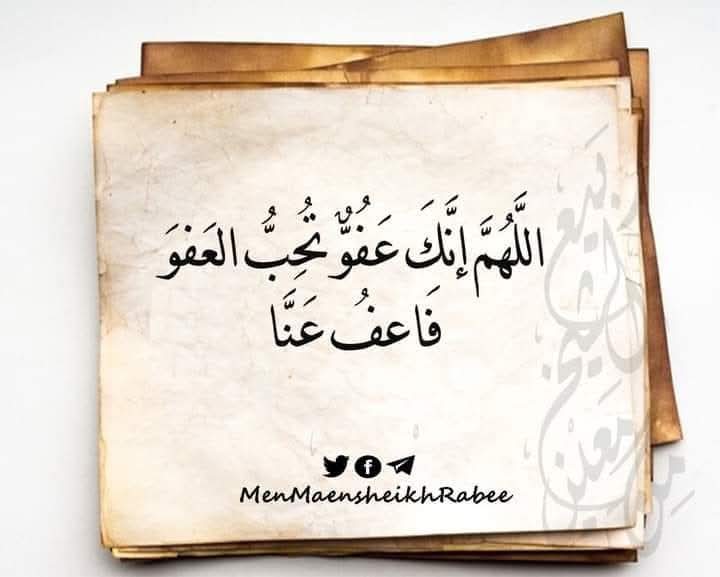 اللَّهُمَّ إِنَّكَ عَفُوٌّ تُحِبُّ العَفوَ
فَاعفُ عَنَّا
MenMaensheikhRabee
من معين الشيخ ربيع